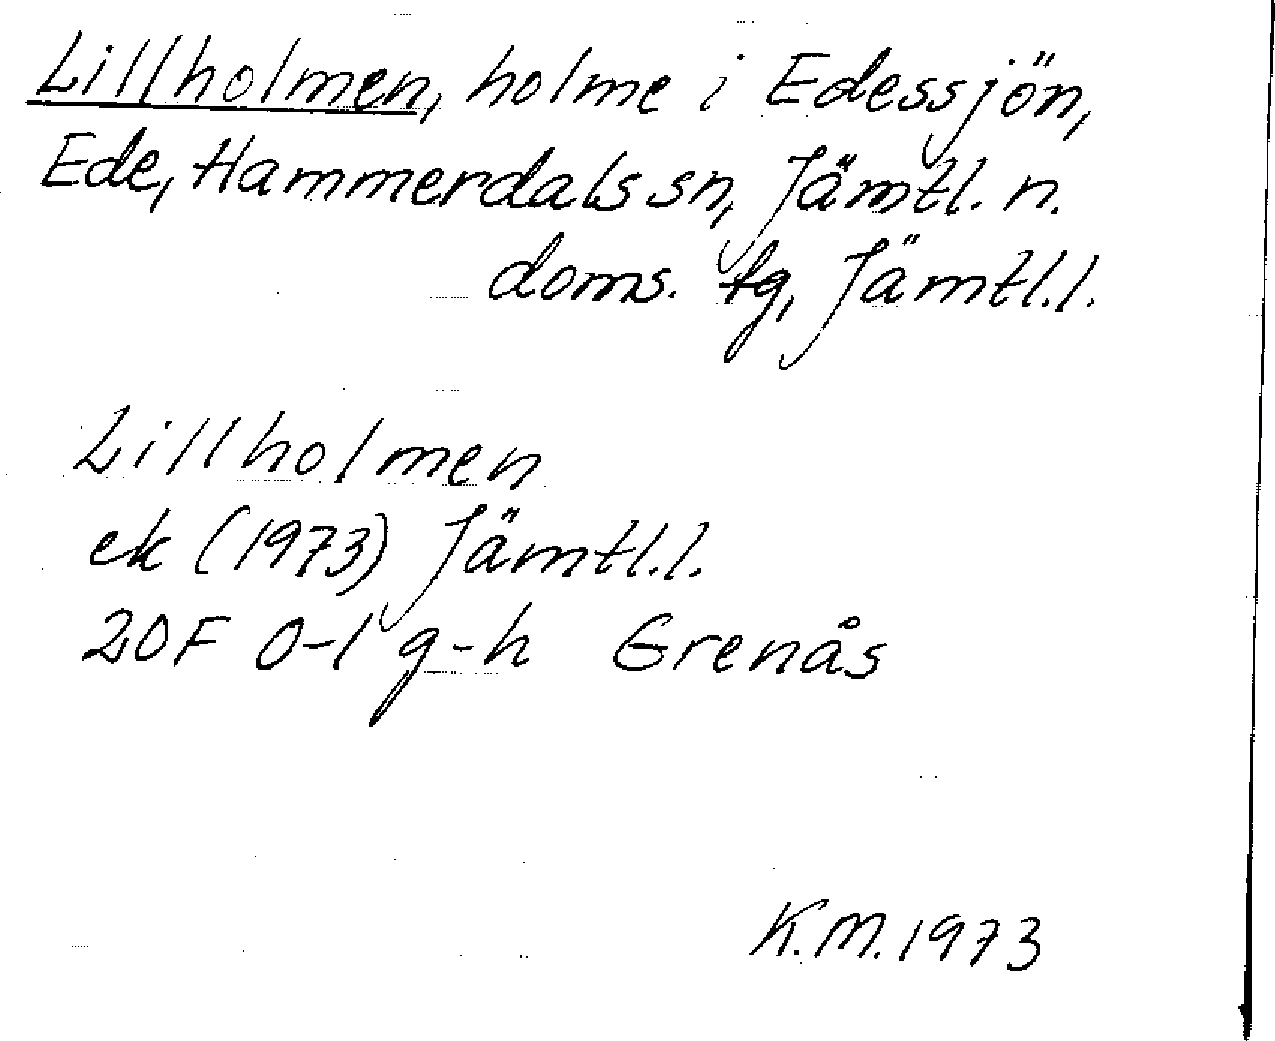 Lillholmen, holme i Edessjön,
Ede, Hammerdals sn, Jämtl. n.
doms. tg, Jämtl.l.
Lillholmen
ek (1973) Jämtl.l.
20F 0-1 g-h Grenås
K.M. 1973